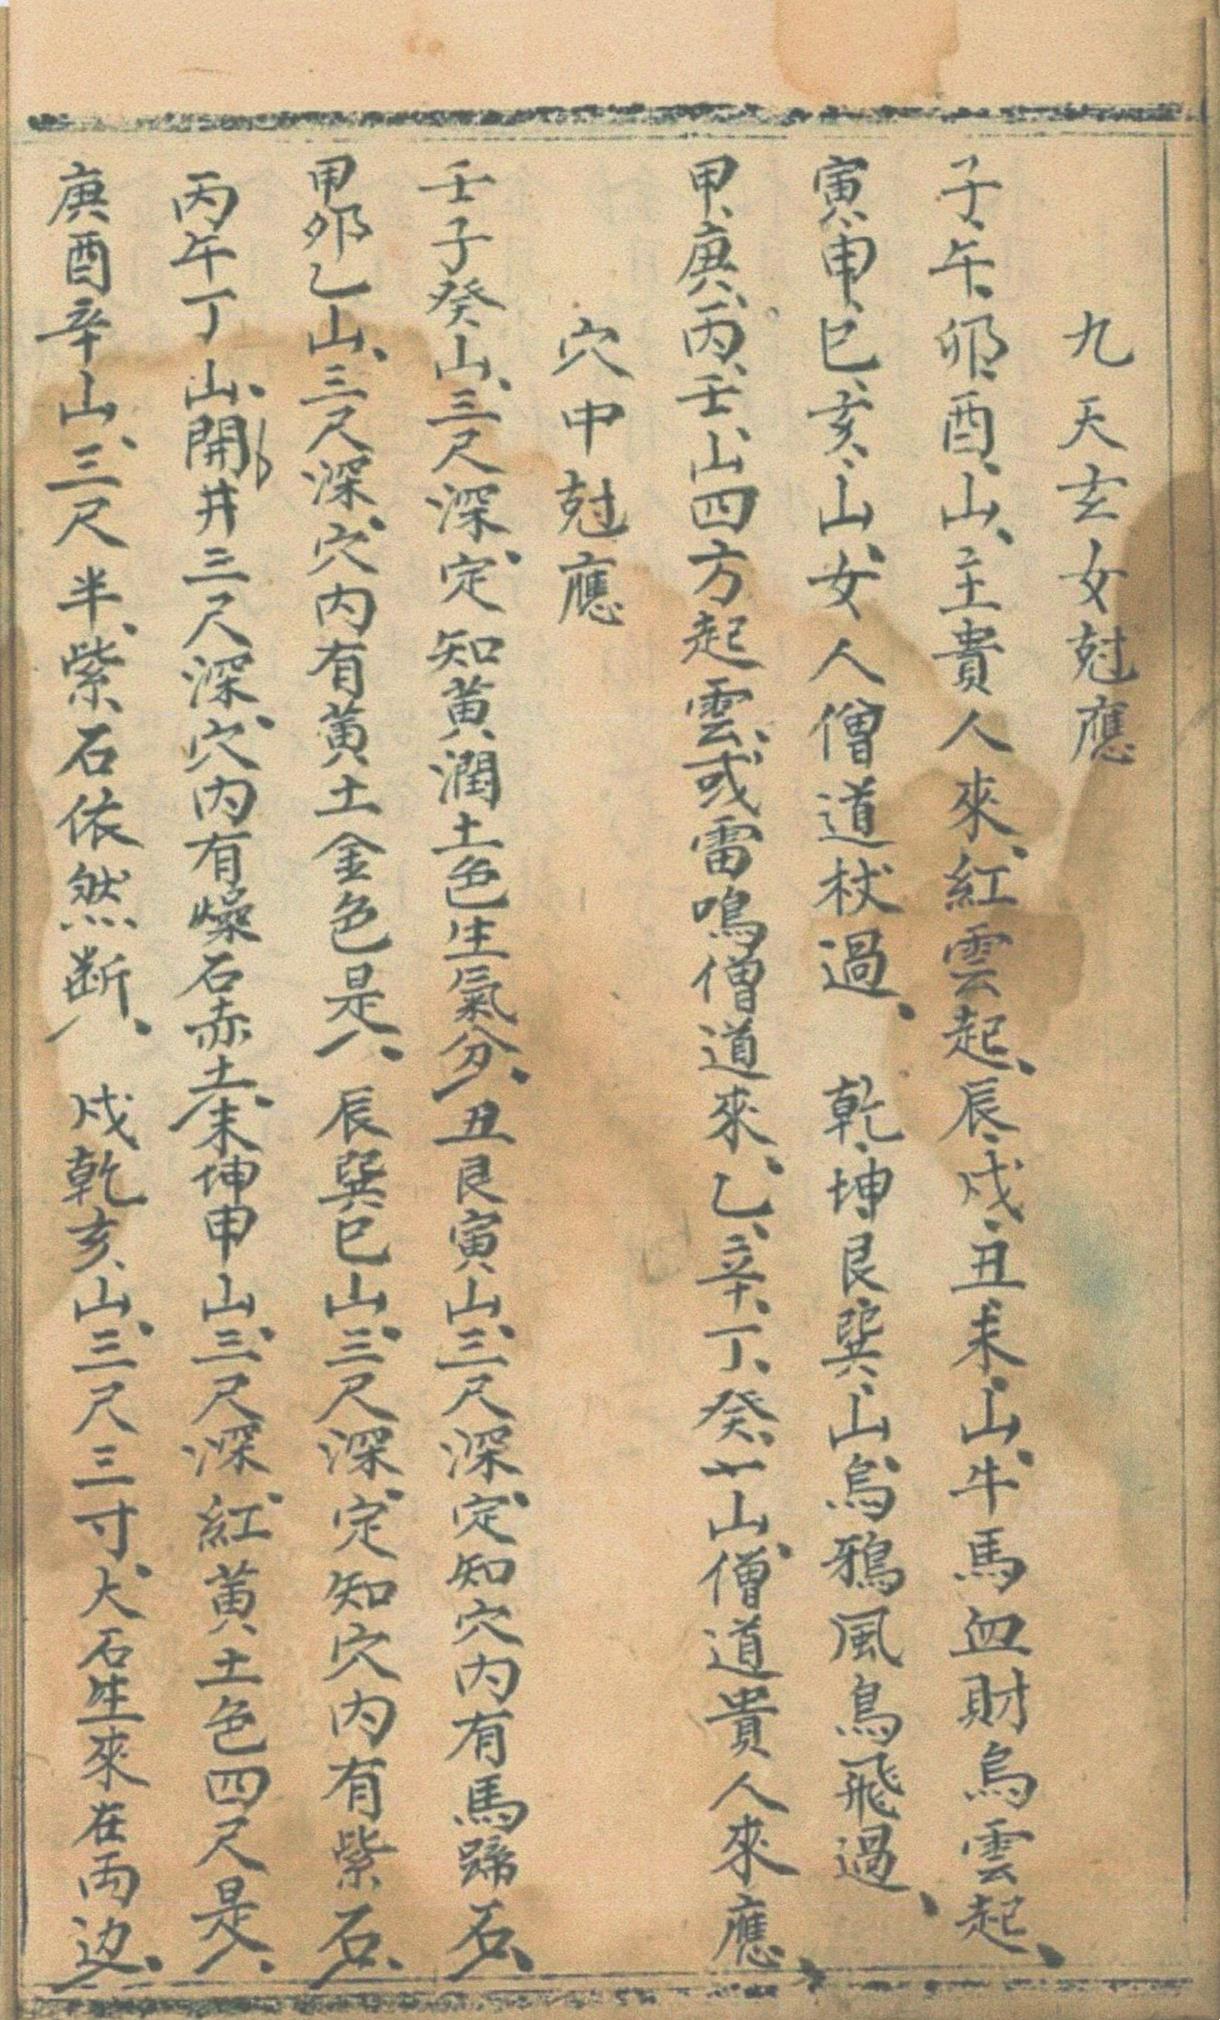 九天玄女尅應
子、午、卯、酉、山、主貴人來、紅雲起、辰、戌、丑未、山、牛馬血財烏雲起、
寅、申、巳、亥、山、女人僧道杖過、乾、坤艮巽、山烏鴉風鳥飛過、
甲、庚、丙、壬、山四方起雲、或雷鳴僧道來、乙、辛、丁、癸、山、僧道貴人來應、
穴中尅應
壬子癸山、三尺深、定知黃潤土色生氣分、丑艮寅山、三尺深、定知穴內有馬蹄石、
甲卯乙山、三尺深、穴內有黃土金色是、辰巽巳山、三尺深、定知穴內有紫石、
丙午丁山、開井三尺深、穴內有燥石赤土、未坤申山、三尺深、紅黃土色四尺是、
庚酉辛山、三尺半、紫石依然断、戌乾亥、山、三尺三寸、大石生來在両边、